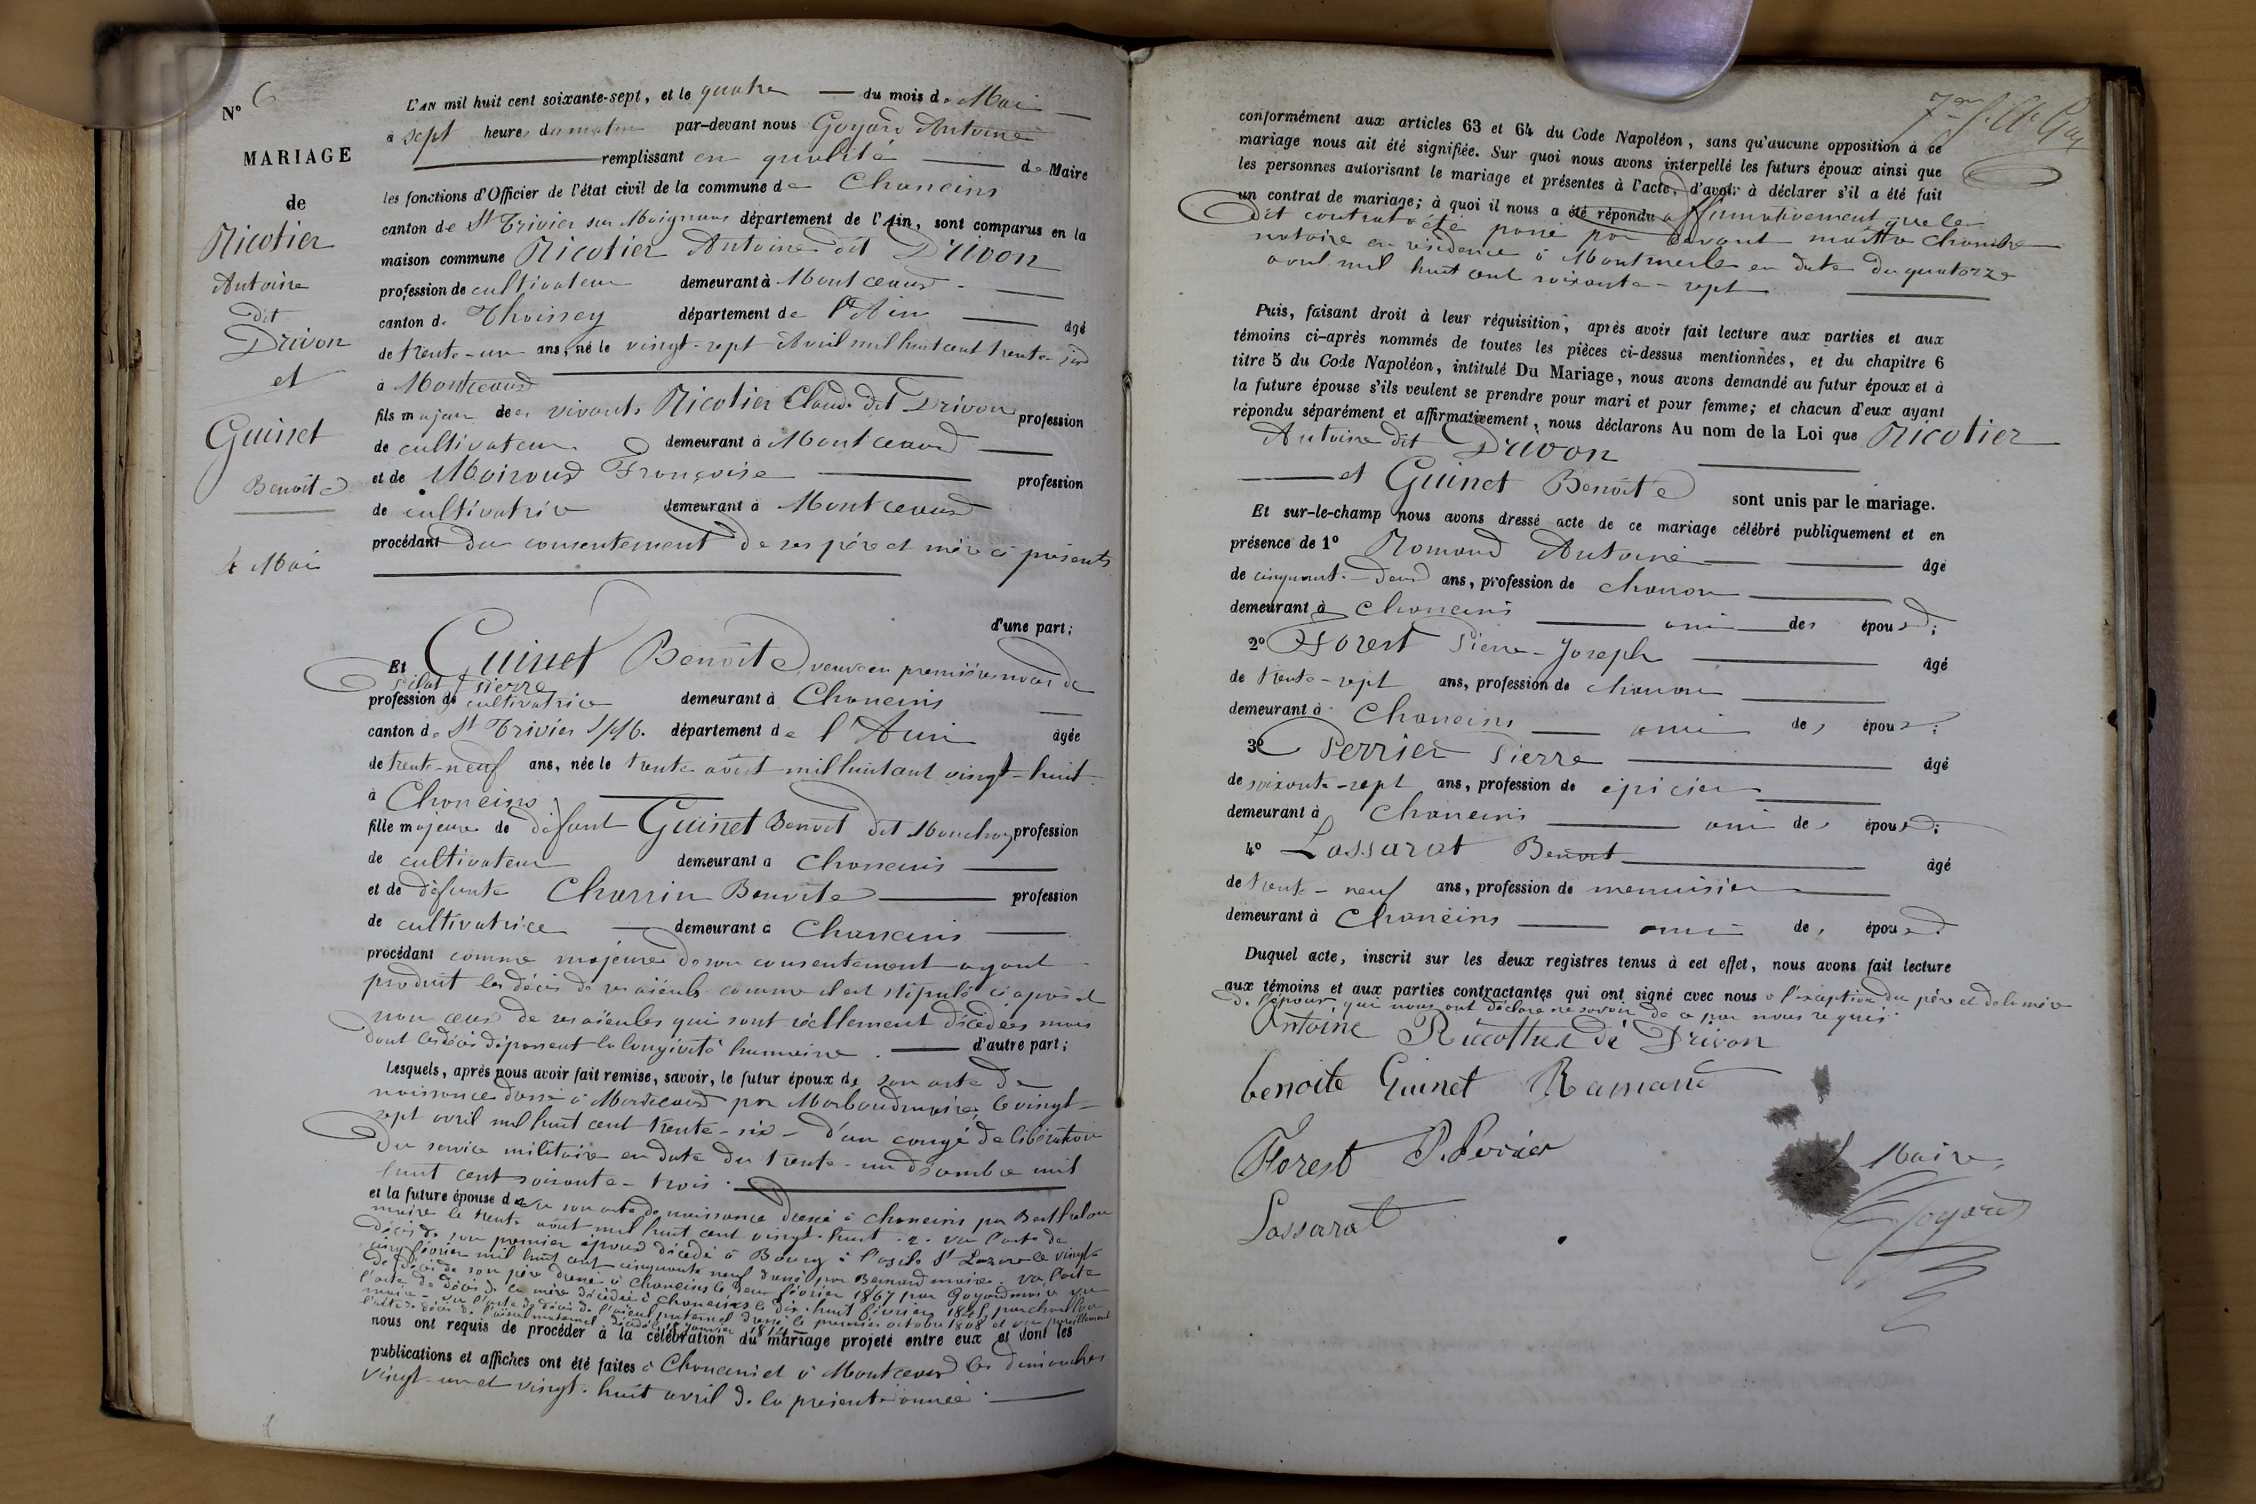 N° 6
MARIAGE
de
Nicotier
Antoine
dit
Drivon
et
Guinet
Benoîte
4 Mai
L'AN mil huit cent soixante-sept, et le quatre du mois de Mai
à sept heures du matin par-devant nous Goyard Antoine
remplissant en qualité de Maire
les fonctions d'Officier de l'état civil de la commune de Chaneins
canton de St Trivier sur Moignans département de l'Ain, sont comparus en la
maison commune Nicotier Antoine dit Drivon
profession de cultivateur demeurant à Montceaux
canton de Thoissey département de l'Ain âgé
de trente-un ans, né le vingt-sept Avril mil huit cent trente six
à Montceaux
fils majeur des vivants Nicotier Claude dit Drivon profession
de cultivateur demeurant à Montceaux
et de Moiroud Françoise profession
de cultivatrice demeurant à Montceaux
procédant du consentement de ses père et mère ci présents
d'une part;
Et Guinet Benoîte, veuve en premières noces de
Pilat Pierre
profession de cultivatrice demeurant à Chaneins
canton de St Trivier s/M. département de l'Ain âgée
de trente-neuf ans, née le trente août mil huit cent vingt-huit
à Chaneins
fille majeure de défunt Guinet Benoît dit Mouchoz profession
de cultivateur demeurant à Chaneins
et de défunte Charrin Benoîte profession
de cultivatrice demeurant à Chaneins
procédant comme majeure de son consentement ayant
produit les décès de ses aïeuls comme il est stipulé ci après et
non ceux de ses aïeules qui sont réellement décédées mais
dont les décès dépassent la longévité humaine. d'autre part;
Lesquels, après nous avoir fait remise, savoir, le futur époux de son acte de
naissance dressé à Montceaux par Marboud maire, le vingt-
sept avril mil huit cent trente-six - d'un congé de libération
du service militaire en date du trente-un décembre mil
huit cent soixante-trois.
et la future épouse de son acte de naissance dressé à Chaneins par Berthelon
maire le trente août mil huit cent vingt-huit. 2. Vu l'acte de
décès de son premier époux décédé à Bourg à l'asile St Lazare le vingt-
cinq février mil huit cent cinquante neuf dressé par Bernard maire. Vu l'acte
de décès de son père dressé à Chaneins le deux février 1867 par Goyard maire vu
l'acte de décès de la mère décédée à Chaneins le dix-huit février
maire - vu l'acte de décès de l'aïeul paternel dressé le premier octobre 1808 et vu pareillement
l'acte de décès de l'aïeul maternel décédé le janvier
nous ont requis de procéder à la célébration du mariage projeté entre eux et dont les
publications et affiches ont été faites à Chaneins et à Montceaux les dimanches
vingt-un et vingt-huit avril de la présente année.
conformément aux articles 63 et 64 du Code Napoléon, sans qu'aucune opposition à ce
mariage nous ait été signifiée. Sur quoi nous avons interpellé les futurs époux ainsi que
les personnes autorisant le mariage et présentes à l'acte, d'avoir à déclarer s'il a été fait
un contrat de mariage; à quoi il nous a été répondu affirmativement que le
dit contrat a été passé par devant maître
notaire en résidence à Montmerle en date du quatorze
avril mil huit cent soixante-sept
Puis, faisant droit à leur réquisition, après avoir fait lecture aux parties et aux
témoins ci-après nommés de toutes les pièces ci-dessus mentionnées, et du chapitre 6
titre 5 du Code Napoléon, intitulé Du Mariage, nous avons demandé au futur époux et à
la future épouse s'ils veulent se prendre pour mari et pour femme; et chacun d'eux ayant
répondu séparément et affirmativement, nous déclarons Au nom de la Loi que Nicotier
Antoine dit Drivon
et Guinet Benoîte sont unis par le mariage.
Et sur-le-champ nous avons dressé acte de ce mariage célébré publiquement et en
présence de 1° Romand Antoine âgé
de cinquante-deux ans, profession de charron
demeurant à Chaneins ami des époux;
2° Forest Pierre-Joseph âgé
de trente-sept ans, profession de charron
demeurant à Chaneins ami des époux;
3° Perrier Pierre âgé
de soixante-sept ans, profession de épicier
demeurant à Chaneins ami des époux;
4° Lassarat Benoit âgé
de trente-neuf ans, profession de menuisier
demeurant à Chaneins ami des époux.
Duquel acte, inscrit sur les deux registres tenus à cet effet, nous avons fait lecture
aux témoins et aux parties contractantes qui ont signé avec nous à l'exception du père et de la mère
de l'époux qui nous ont déclaré ne savoir de ce par nous requis.
Antoine Drivon
benoite Guinet Ramand
Forest P. Perrier
Lassarat
Maire,
Goyard